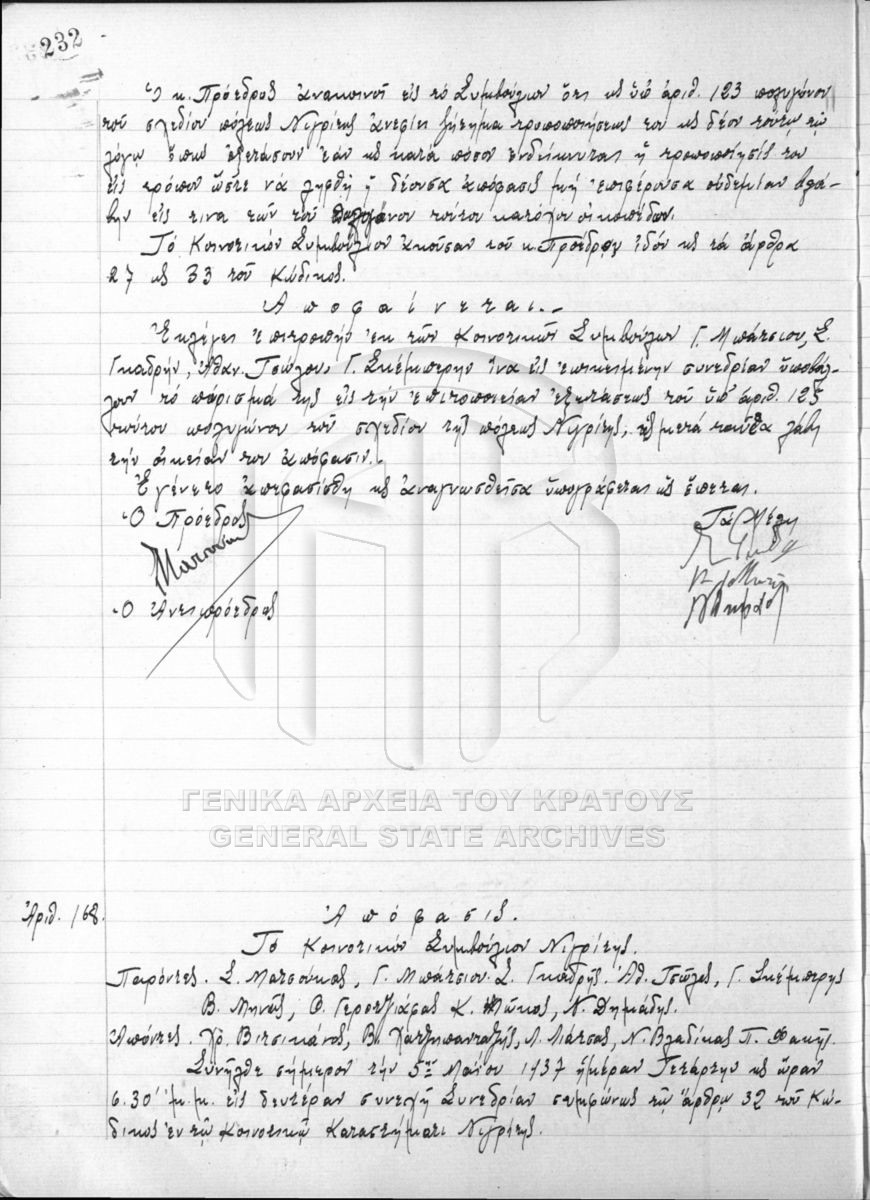 232
Ὁ κ. Πρόεδρος ἀνακοινοῖ εἰς τό Συμβούλιον ὅτι κς ὑπ' ἀριθ. 123 πολυγώνου
τοῦ σχεδίου πόλεως Νιγρίτης ἀνεφύη ζήτημα τροποποιήσεως του κς δέον τούτῳ τῷ
λόγῳ ὅπως ἐξετάσουν ἐάν κς κατά πόσον ἐνδείκνυται ἡ τροποποίησίς του
εἰς τρόπον ὥστε νά ληφθῇ ἡ δέουσα ἀπόφασις μή ἐπιφέρουσα οὐδεμίαν βλά-
βην εἰς τινα τῶν τοῦ πολυγώνου τούτου κατόχου οἰκοπέδων.
Τό Κοινοτικόν Συμβούλιον ἀκοῦσαν τοῦ κ. Προέδρου ἰδόν κς τά ἄρθρα
27 κς 33 τοῦ Κώδικος.
Ἀποφαίνεται.-
Ἐκλέγει ἐπιτροπήν ἐκ τῶν Κοινοτικῶν Συμβούλων Γ. Μπάτσιου, Σ.
Γκαδρήν, Ἀθαν. Τσώλου, Γ. Σκέμπερην ἵνα εἰς ἐπικειμένην συνεδρίαν ὑποβά-
λουν τό πόρισμά της εἰς τήν ἐξετάσεως τοῦ ὑπ' ἀριθ. 123
τούτου πολυγώνου τοῦ σχεδίου τῆς πόλεως Νιγρίτης, κς μετά ταῦτα λάβῃ
τήν οἰκείαν του ἀπόφασιν.
Ἐγένετο ἀπεφασίσθη κς ἀναγνωσθεῖσα ὑπογράφεται ὡς ἕπεται.
Ὁ Πρόεδρος Τά Μέλη
Ὁ Ἀντιπρόεδρος
ΓΕΝΙΚΑ ΑΡΧΕΙΑ ΤΟΥ ΚΡΑΤΟΥΣ
GENERAL STATE ARCHIVES
Ἀριθ. 168. Ἀπόφασις.
Τό Κοινοτικόν Συμβούλιον Νιγρίτης.
Παρόντες. Σ. Ματσούκας, Γ. Μπάτσιου Σ. Γκαδρῆς. Ἀθ. Τσῶλες, Γ. Σκέμπερης
Β. Μηνᾶς, Θ. Γεροτζιάφας Κ. Νῶκος, Ν. Δημάδης.
Ἀπόντες. Χρ. Βιτσικάνος, Β. Χατζηπανταζῆς, Λ. Λιάτσας, Ν. Βλαδίκας Π. Φακῆς.
Συνῆλθε σήμερον τήν 5ην Μαΐου 1937 ἡμέραν Τετάρτην κς ὥραν
6.30' μ.μ. εἰς δευτέραν συνεχῆ Συνεδρίαν συμφώνως τῷ ἄρθρῳ 32 τοῦ Κώ-
δικος ἐν τῷ Κοινοτικῷ Καταστήματι Νιγρίτης.